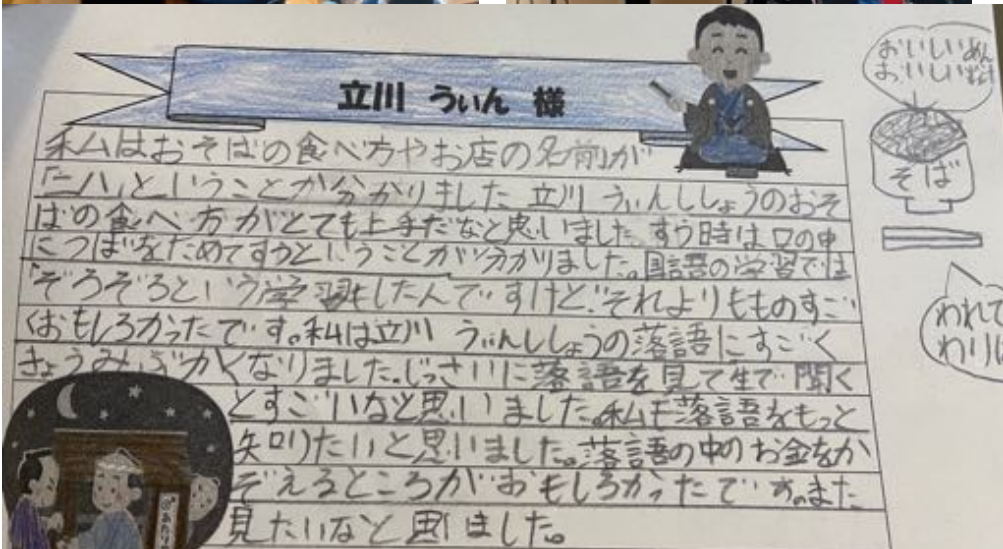 立川 うぃん 様
私はおそばの食べ方やお店の名前が
「二八」ということが分かりました 立川 うぃんししょうのおそ
ばの食べ方がとても上手だなと思いました。すう時は口の中
につばをためてすうということが分かりました。国語の学習では
「ぞろぞろという学習もしたんですけど"それよりもものすご
くおもしろかったです。私は立川 うぃんししょうの落語にすごく
きょうみぶかくなりました。じっさいに落語を見て生で聞く
とすごいなと思いました。私も落語をもっと
知りたいと思いました。落語の中のお金をか
ぞえるところがおもしろかったです。また
見たいなと思いました。
おいしいめん
おいしい
そば
われて
わり